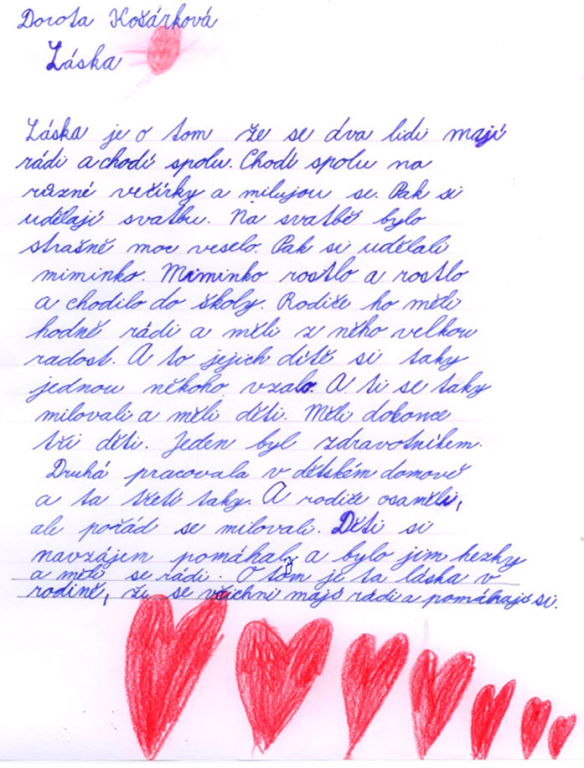 Dorota Košárková
Láska
Láska je o tom že se dva lidi mají
rádi a chodí spolu. Chodí spolu na
různé večírky a milujou se. Pak si
udělají svatbu. Na svatbě bylo
strašně moc veselo. Pak si udělali
miminko. Miminko rostlo a rostlo
a chodilo do školy. Rodiče ho měli
hodně rádi a měli z něho velkou
radost. A to jejich dítě si taky
jednou někoho vzalo. A ti se taky
milovali a měli děti. Měli dokonce
tři děti. Jeden byl zdravotníkem.
Druhá pracovala v dětském domově
a ta třetí taky. A rodiče osaměli,
ale pořád se milovali. Děti si
navzájem pomáhaly a bylo jim hezky
a měli se rádi. O tom je ta láska v
rodině, že se všichni majó rádi a pomáhajó si.